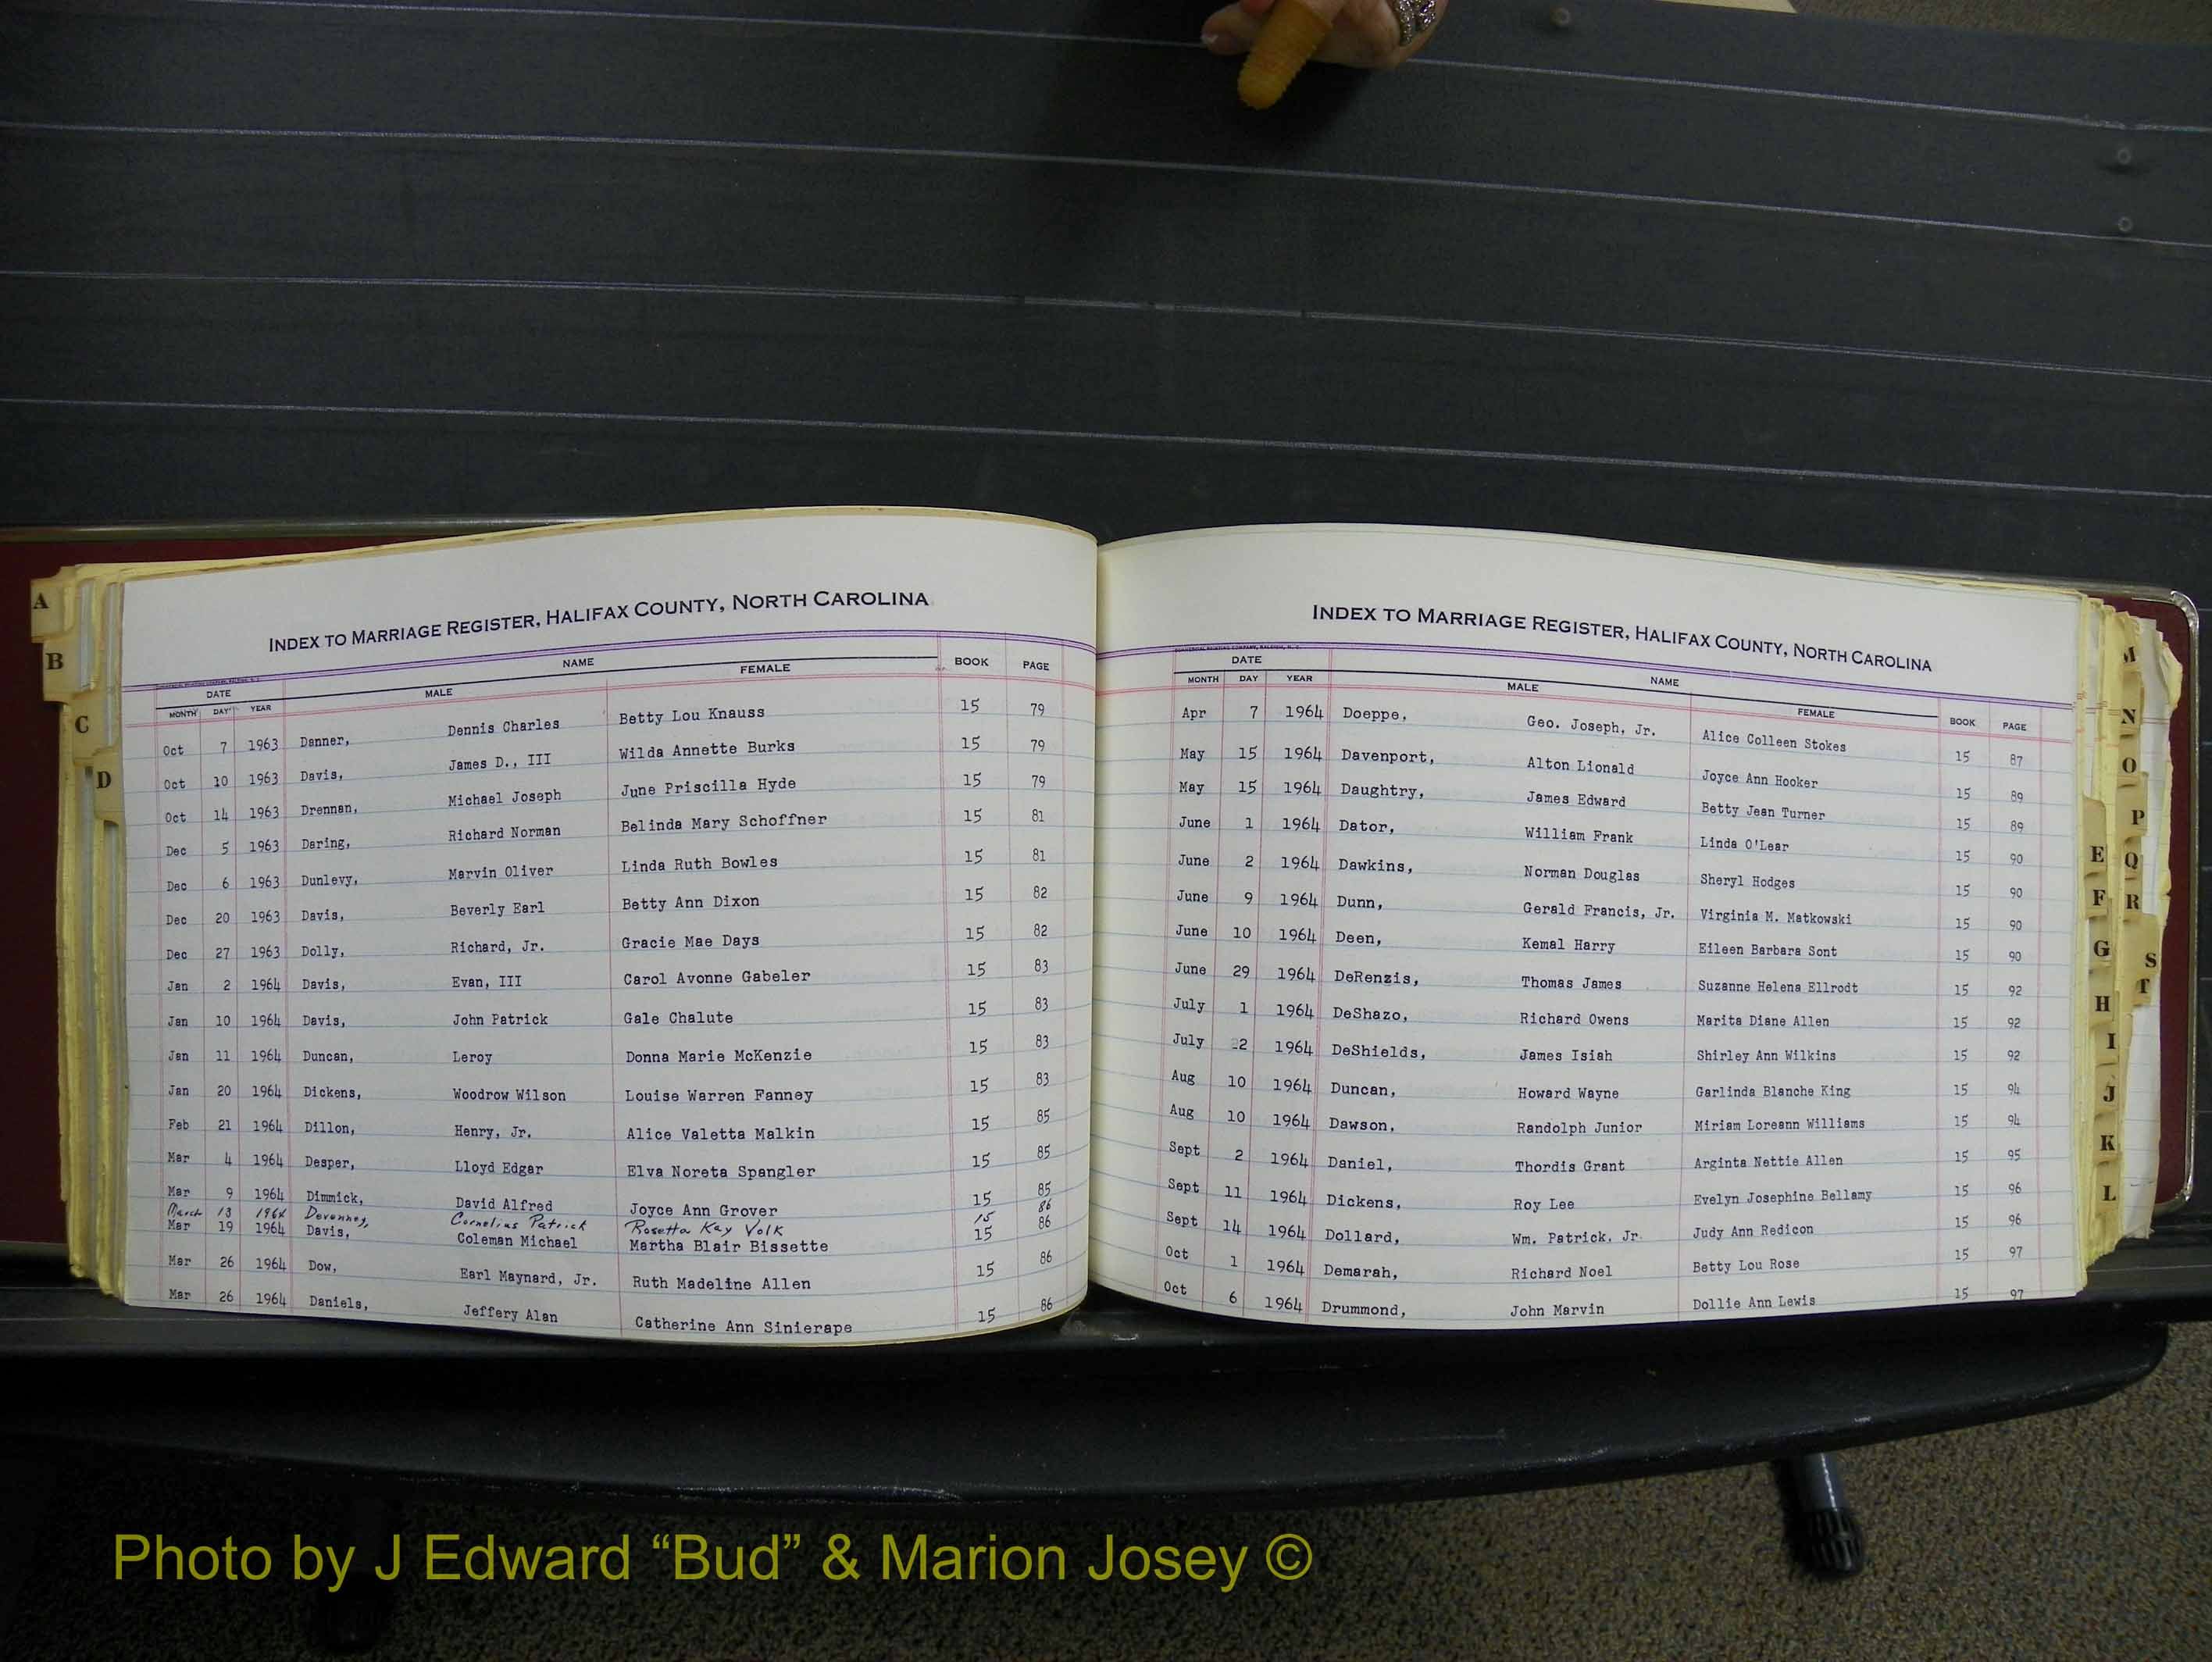 INDEX TO MARRIAGE REGISTER, HALIFAX COUNTY, NORTH CAROLINA
DATE NAME BOOK PAGE
MONTH DAY YEAR MALE FEMALE
Oct 7 1963 Danner, Dennis Charles Betty Lou Knauss 15 79
Oct 10 1963 Davis, James D., III Wilda Annette Burks 15 79
Oct 14 1963 Drennan, Michael Joseph June Priscilla Hyde 15 79
Dec 5 1963 Daring, Richard Norman Belinda Mary Schoffner 15 81
Dec 6 1963 Dunlevy, Marvin Oliver Linda Ruth Bowles 15 81
Dec 20 1963 Davis, Beverly Earl Betty Ann Dixon 15 82
Dec 27 1963 Dolly, Richard, Jr. Gracie Mae Days 15 82
Jan 2 1964 Davis, Evan, III Carol Avonne Gabeler 15 83
Jan 10 1964 Davis, John Patrick Gale Chalute 15 83
Jan 11 1964 Duncan, Leroy Donna Marie McKenzie 15 83
Jan 20 1964 Dickens, Woodrow Wilson Louise Warren Fanney 15 83
Feb 21 1964 Dillon, Henry, Jr. Alice Valetta Malkin 15 85
Mar 4 1964 Desper, Lloyd Edgar Elva Noreta Spangler 15 85
Mar 9 1964 Dimmick, David Alfred Joyce Ann Grover 15 85
March 13 1964 Devenney, Cornelius Patrick Rosetta Kay Volk 15 86
Mar 19 1964 Davis, Coleman Michael Martha Blair Bissette 15 86
Mar 26 1964 Dow, Earl Maynard, Jr. Ruth Madeline Allen 15 86
Mar 26 1964 Daniels, Jeffery Alan Catherine Ann Sinierape 15 86
A
B
C
D
INDEX TO MARRIAGE REGISTER, HALIFAX COUNTY, NORTH CAROLINA
DATE NAME
MONTH DAY YEAR MALE FEMALE BOOK PAGE
Apr 7 1964 Doeppe, Geo. Joseph, Jr. Alice Colleen Stokes 15 87
May 15 1964 Davenport, Alton Lionald Joyce Ann Hooker 15 89
May 15 1964 Daughtry, James Edward Betty Jean Turner 15 89
June 1 1964 Dator, William Frank Linda O'Lear 15 90
June 2 1964 Dawkins, Norman Douglas Sheryl Hodges 15 90
June 9 1964 Dunn, Gerald Francis, Jr. Virginia M. Matkowski 15 90
June 10 1964 Deen, Kemal Harry Eileen Barbara Sont 15 90
June 29 1964 DeRenzis, Thomas James Suzanne Helena Ellrodt 15 92
July 1 1964 DeShazo, Richard Owens Marita Diane Allen 15 92
July 1964 DeShields, James Isiah Shirley Ann Wilkins 15 92
Aug 10 1964 Duncan, Howard Wayne Garlinda Blanche King 15 94
Aug 10 1964 Dawson, Randolph Junior Miriam Loreann Williams 15 94
Sept 2 1964 Daniel, Thordis Grant Arginta Nettie Allen 15 95
Sept 11 1964 Dickens, Roy Lee Evelyn Josephine Bellamy 15 96
Sept 14 1964 Dollard, Wm. Patrick, Jr. Judy Ann Redicon 15 96
Oct 1 1964 Demarah, Richard Noel Betty Lou Rose 15 97
Oct 6 1964 Drummond, John Marvin Dollie Ann Lewis 15 97
E
F
G
H
I
J
K
L
M
N
O
P
Q
R
S
T
Photo by J Edward “Bud” & Marion Josey ©